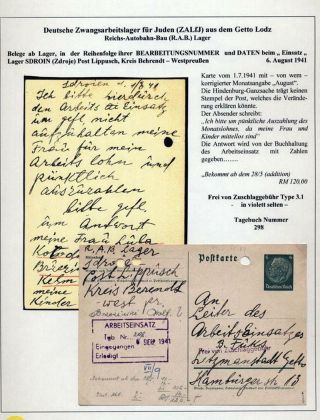 Deutsche Zwangsarbeitslager für Juden (ZALfJ) aus dem Getto Lodz
Reichs-Autobahn-Bau (R.A.B.) Lager
Belege ab Lager, in der Reihenfolge ihrer BEARBEITUNGSNUMMER und DATEN beim „ Einsatz „
Lager SDROIN (Zdroje) Post Lippusch, Kreis Behrendt – Westpreußen 6. August 1941
Karte vom 1.7.1941 mit - von wem -
korrigierter Monatsangabe „August".
Die Hindenburg-Ganzsache trägt keinen
Stempel der Post, welches die Veränderung
erklären könnte.
Der Absender schreibt:
„Ich bitte um pünktliche Auszahlung des
Monatslohnes, da meine Frau und
Kinder mittellos sind"
Die Antwort wird von der Buchhaltung
des Arbeitseinsatz mit Zahlen
gegeben:
„Bekommt ab dem 28/5 (addition)
RM 120,00
Frei von Zuschlaggebühr Type 3.1
- in violett selten –
Tagebuch Nummer
298
Ich bitte hierdurch
den Arbeits Einsatz
um gefl. nicht
aufzuhalten meine
Frau für mein
Arbeits lohn und
pünktlich
auszuzahlen
bitte gefl.
um Antwort
meine Frau
meine
Kinder
R.A.B. Lager
Post Lippusch
Kreis Berendt
West pr.
ARBEITSEINSATZ
Tgb Nr. 298
Eingegangen 6 1941
Erledigt
Postkarte
An
Leiter des
Arbeits Einsatzes
Frei von Zuschlaggebühr
Litzmannstadt Getto
Hamburger str 13